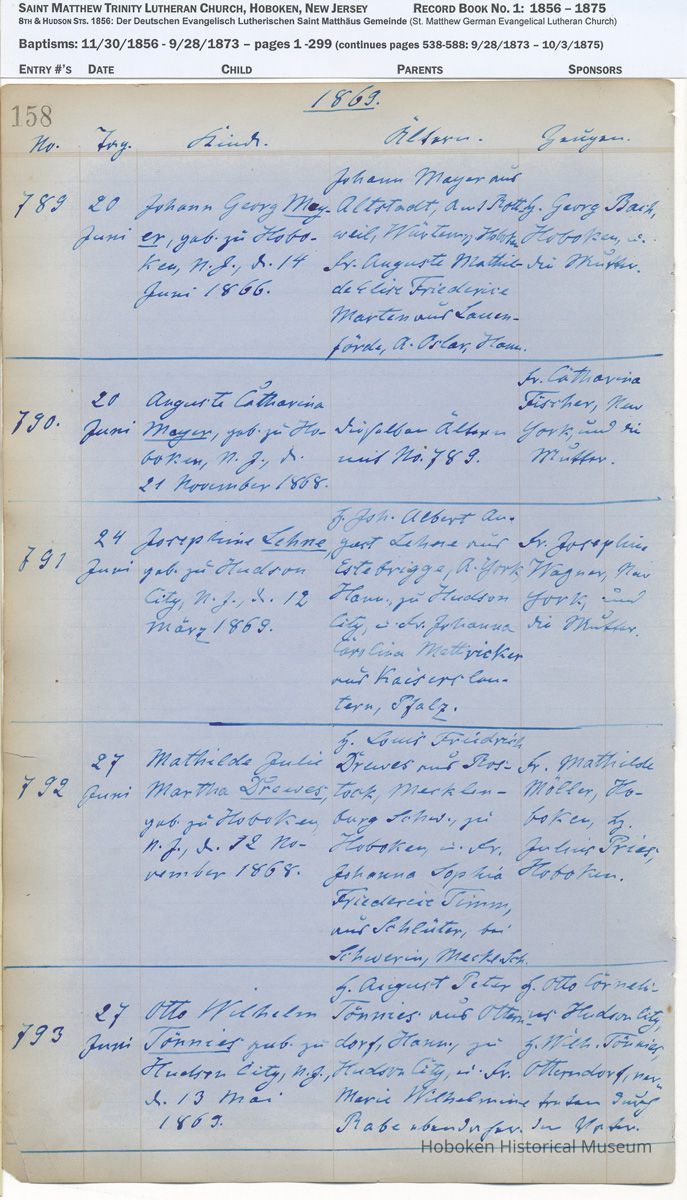 SAINT MATTHEW TRINITY LUTHERAN CHURCH, HOBOKEN, NEW JERSEY RECORD BOOK NO. 1: 1856 – 1875
8TH & HUDSON STS. 1856: Der Deutschen Evangelisch Lutherischen Saint Matthäus Gemeinde (St. Matthew German Evangelical Lutheran Church)
Baptisms: 11/30/1856 - 9/28/1873 – pages 1 -299 (continues pages 538-588: 9/28/1873 – 10/3/1875)
ENTRY #'S DATE CHILD PARENTS SPONSORS
1869.
158
No. Tag. Kind. Ältern. Zeugen.
789
20
Juni
Johann Georg May-
er, geb. zu Hobo-
ken, N.J., d. 14
Juni 1866.
Johann Mayer aus
Altstadt, Amt Rott-
weil, Würtemg.,
Fr. Auguste Mathil-
de Elise Friederice
Marten aus Lauen-
förde, A. Oslar, Hann.
H. Georg Bach,
Hoboken, u.
die Mutter.
790.
20
Juni
Auguste Catharina
Mayer, geb. zu Ho-
boken, N. J., d.
21 November 1868.
dieselben Ältern
mit No. 789.
Fr. Catharina
Fischer, New
York, und die
Mutter.
791
24
Juni
Josephine Lehne,
geb. zu Hudson
City, N. J., d. 12
März 1869.
H. Joh. Albert Au-
gust Lehne aus
Estebrügge, A. York
Hann., zu Hudson
City, u. Fr. Johanna
Carolina Mattricker
aus Kaiserslau-
tern, Pfalz.
Fr. Josephine
Wagner, New
York, und
die Mutter.
792
27
Juni
Mathilde Julie
Martha Drewes,
geb. zu Hoboken,
N.J., d. 12 No-
vember 1868.
H. Louis Friedrich
Drewes aus Ros-
tock, Mecklen-
burg Schw., zu
Hoboken, u. Fr.
Johanna Sophia
Friedericie Timm,
aus Schlüter, bei
Schwerin, Meckl. Sch.
Fr. Mathilde
Möller, Ho-
boken, H.
Julius Pries,
Hoboken.
793
27
Juni
Otto Wilhelm
Tönnies geb. zu
Hudson City, N.J.,
d. 13 Mai
1869.
H. August Peter
Tönnies aus Ottern-
dorf, Hann., zu
Hudson City, u. Fr.
Marie Wilhelmine
Rabe ebendaher.
H. Otto Corneli-
us Hudson City,
H. Wilh. Tönnies,
Otterndorf, ver-
treten durch
den Vater.
Hoboken Historical Museum